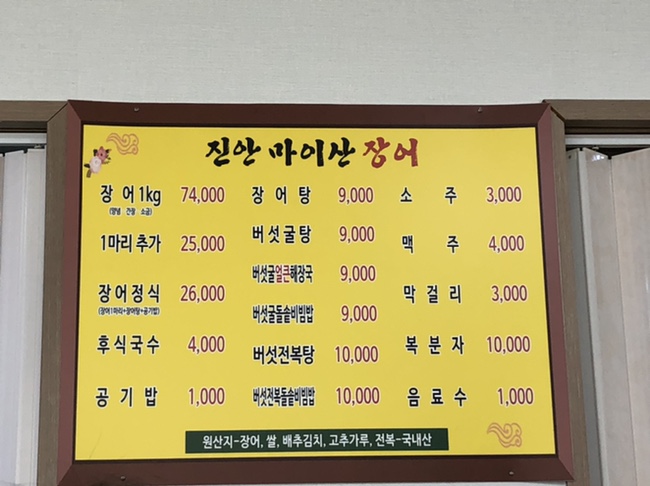 진안 마이산 장어
장 어 1kg 74,000
(양념 간장 소금)
1마리 추가 25,000
장어정식 26,000
(장어1마리+장어탕+공기밥)
후식국수 4,000
공 기 밥 1,000
장 어 탕 9,000
버섯굴탕 9,000
버섯굴얼큰해장국 9,000
버섯굴돌솥비빔밥 9,000
버섯전복탕 10,000
버섯전복돌솥비빔밥 10,000
소 주 3,000
맥 주 4,000
막걸리 3,000
복 분 자 10,000
음 료 수 1,000
원산지-장어, 쌀, 배추김치, 고추가루, 전복-국내산